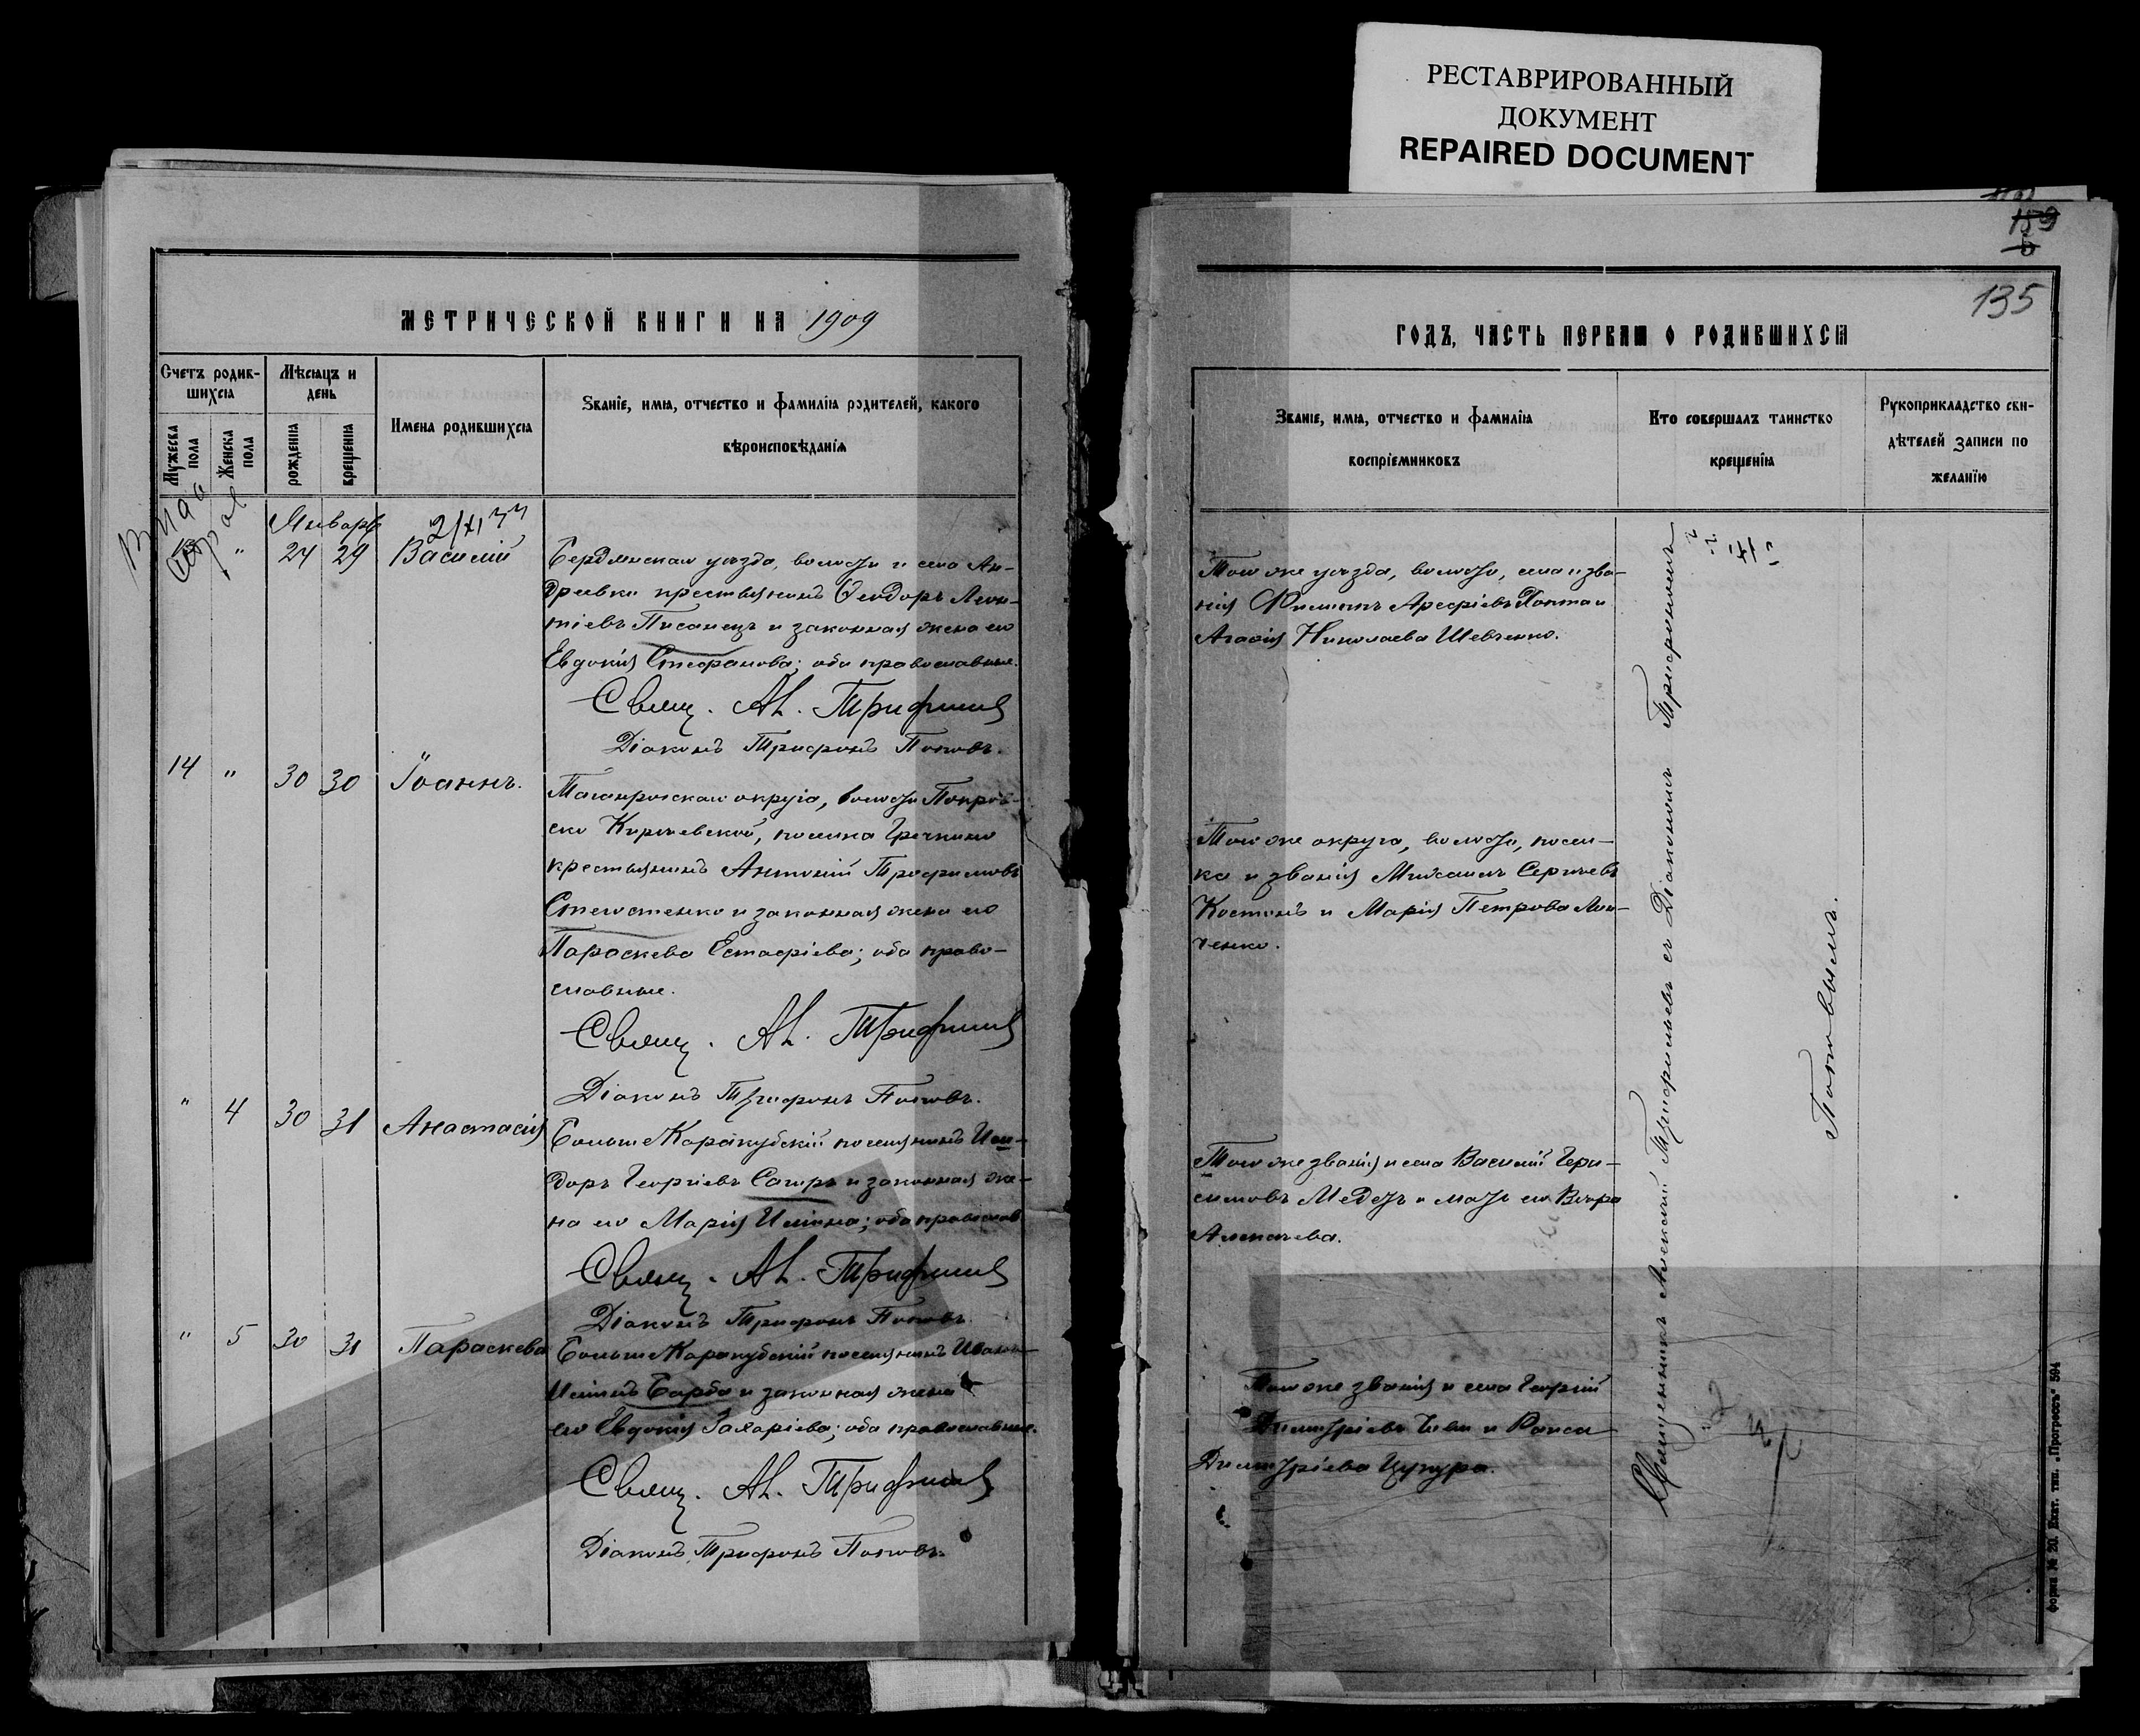 РЕСТАВРИРОВАННЫЙ
ДОКУМЕНТ
REPAIRED DOCUMENT
МЕТРИЧЕСКОЙ КНИГИ НА 1909
Счетъ родив-
шихся
Мужеска
пола
Женска
пола
Мѣсяцъ и
день
рожденія
крещенія
Имена родившихся
Званіе, имя, отчество и фамилія родителей, какого
вѣроисповѣданія
Январь
" 24 29 Василій
Бердянскаго уѣзда, волости и села Ан-
дреевки крестьянинъ Ѳеодоръ Леон-
тіевъ Писанецъ и законная жена его
Евдокія Стефанова; оба православные.
Свящ. Ал. Трифильевъ
Діаконъ Трифонъ Поповъ.
14 " 30 30 Іоаннъ.
Таганрогскаго округа, волости Покров-
ско Киреевской, поселка Гречкино
крестьянинъ Антоній Трофимовъ
и законная жена его
Параскева Евстафіева; оба право-
славные.
Свящ. Ал. Трифильевъ
Діаконъ Трифонъ Поповъ.
" 4 30 31 Анастасія
Больше Каракубскій поселянинъ Иси-
доръ Георгіевъ Сагиръ и законная же-
на его Марія Ильина; оба православ
Свящ. Ал. Трифильевъ
Діаконъ Трифонъ Поповъ.
" 5 30 31 Параскева
Больше Каракубскій поселянинъ Иванъ
Ильинъ Барба и законная жена
его Евдокія Захаріева; оба православные.
Свящ. Ал. Трифильевъ
Діаконъ Трифонъ Поповъ.
159
135
ГОДЪ, ЧАСТЬ ПЕРВАЯ О РОДИВШИХСЯ
Званіе, имя, отчество и фамилія
воспріемниковъ
Кто совершалъ таинство
крещенія
Рукоприкладство сви-
дѣтелей записи по
желанію
Того же уѣзда, волости, села и зва-
нія Филиппъ Арефіевъ и
Агафія Николаева Шевченко.
Того же округа, волости, посел-
ка и званія Михаилъ Сергѣевъ
Костинъ и Марія Петрова
Того же званія и села Василій Гера-
симовъ Медезъ и мать его Вѣра
Алексѣева.
Того же званія и села Георгій
Димитріевъ и Раиса
Димитріева Цукура.
Священникъ Алексій Трифильевъ съ Діакономъ Трифономъ
Поповымъ.
форма № 20. Екат. тип. „Прогрессъ" 594